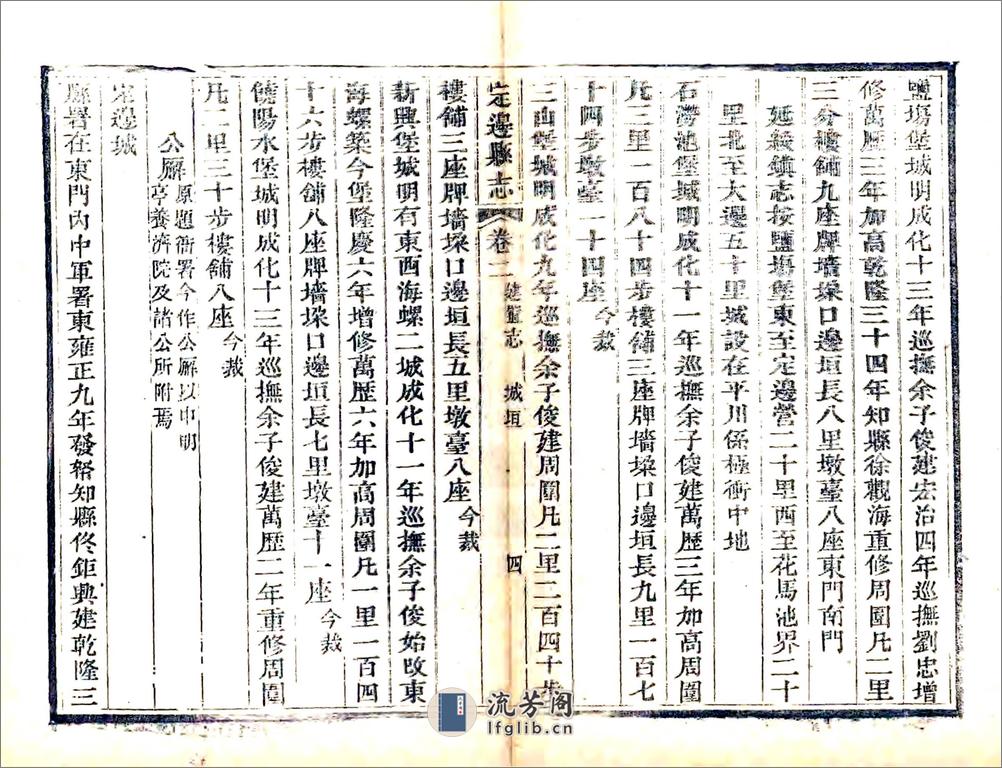 鹽塲堡城明成化十三年巡撫余子俊建宏治四年巡撫劉忠增
修萬歷三年加高乾隆三十四年知縣徐觀海重修周圍凡二里
三分樓鋪九座牌墻垜口邊垣長八里墩臺八座東門南門
延綏鎮志按鹽塲堡東至定邊營二十里西至花馬池界二十
里北至大邊五十里城設在平川係極衝中地
石澇池堡城明成化十一年巡撫余子俊建萬歷三年加高周圍
凡三里一百八十四步樓鋪三座牌墻垜口邊垣長九里一百七
十四步墩臺一十四座今裁
三山堡城明成化九年巡撫余子俊建周圍凡二里二百四十步
定邊縣志 卷二 建置志 城垣 四
樓鋪三座牌墻垜口邊垣長五里墩臺八座今裁
新興堡城明有東西海螺二城成化十一年巡撫余子俊始改東
海螺築今堡隆慶六年增修萬歷六年加高周圍凡一里一百四
十六步樓鋪八座牌墻垜口邊垣長七里墩臺十一座今裁
饒陽水堡城明成化十三年巡撫余子俊建萬歷二年重修周圍
凡二里三十步樓鋪八座今裁
公廨原題衙署今作公廨以申明
亭養濟院及諸公所附焉
定邊城
縣署在東門內中軍署東雍正九年發帑知縣佟鉅典建乾隆三
流芳阁
lfglib.cn